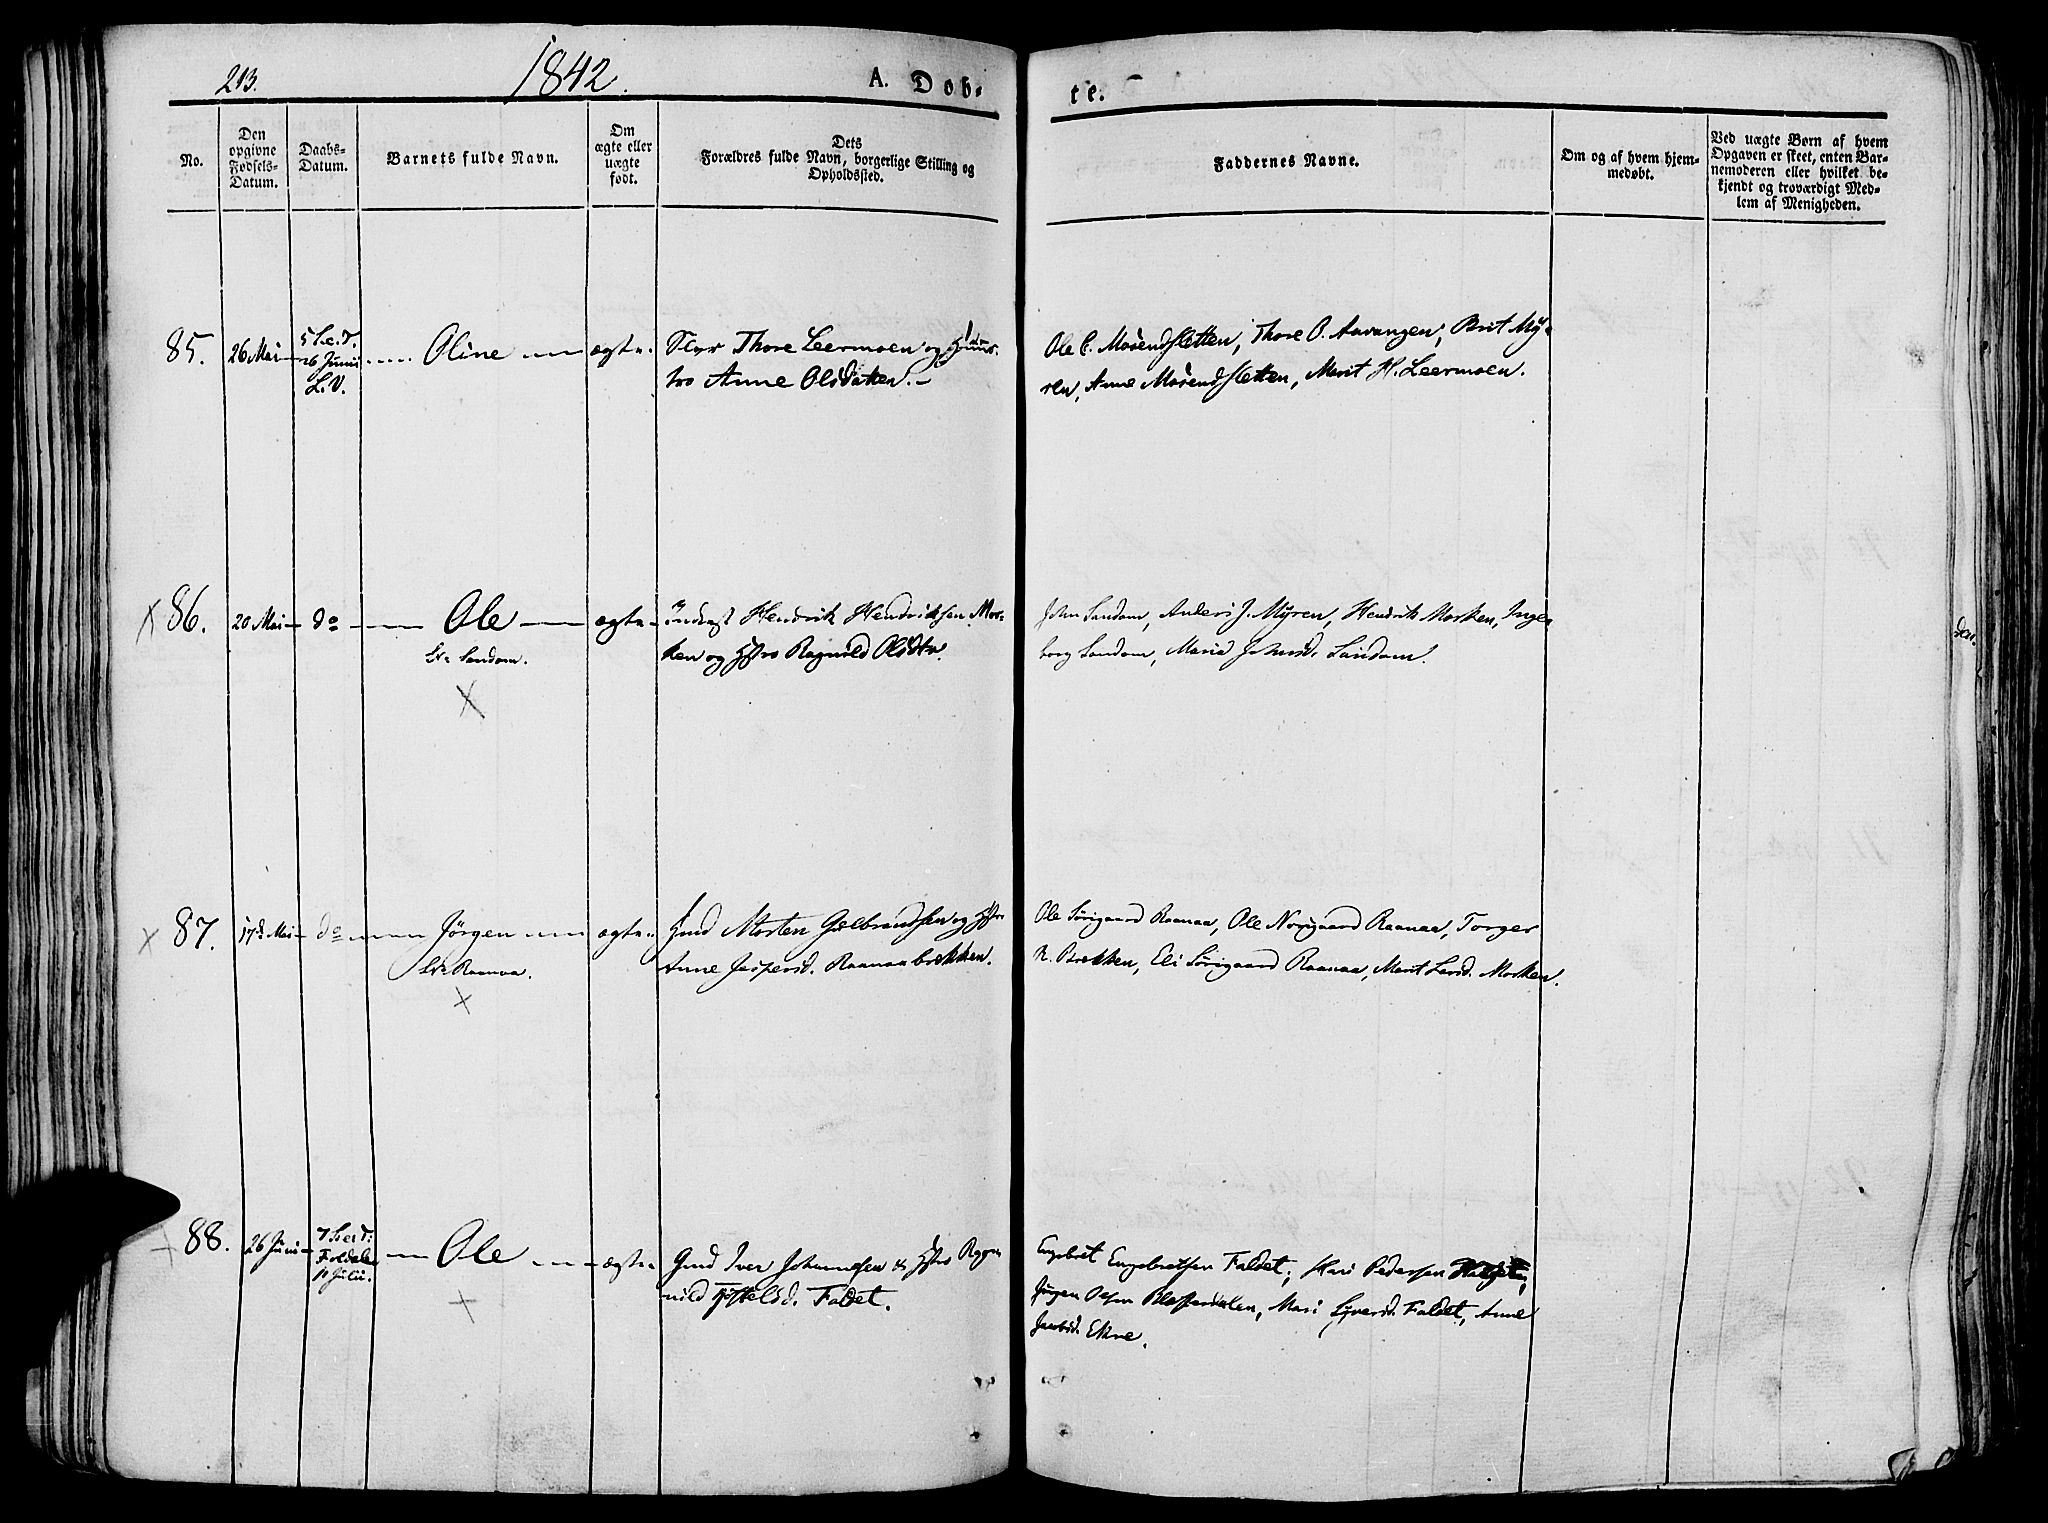 213.
1842.
A. Døb-
te.
No.
Den
opgivne
Fødsels-
Datum.
Daabs-
Datum.
Barnets fulde Navn.
Om
ægte eller
uægte
født.
Dets
Forældres fulde Navn, borgerlige Stilling og
Opholdssted.
Faddernes Navne.
Om og af hvem hjem-
medøbt.
Ved uægte Børn af hvem
Opgaven er skeet, enten Bar-
nemoderen eller hvilket be-
kjendt og troværdigt Med-
lem af Menigheden.
85.
26 Mai
5 S. e. T.
26 Junii
L. V.
Oline
ægte
Thore Leermoen og
tro Anne Olsdatten.
Ole E. Morendsletten, Thore O. Aavangen, Brit My-
ren, Anne Morendsletten, Marit H. Leermoen.
86.
20 Mai
do
Ole
Sandom.
ægte
Inderst Hendrik Hendriksen Mor-
ken og Hstro Ragnild Olsdtr.
John Sandom, Anders J. Myren, Hendrik Morken, Inge-
borg Sandom, Maria Johnsd. Sandom.
87.
17d Mai
do
Jörgen
Raanaa.
ægte
Gmd Morten Gulbrandsen og Hstro
Anne Jespersd. Raanaabrekken.
Ole Sörigaard Raanaa, Ole Norigaard Raanaa, Torger
R. Brekken, Eli Sörigaard Raanaa, Marit Larsd. Morken.
88.
26 Juni
7 S. e. T.
Foldalen
10 Julii.
Ole
ægte
Gmd Iver Johannesen & Hstro Ragn-
nild Kjøstelsd. Faldet.
Engebret Engebretsen Faldet, Hari Pedersen
Jörgen Olsen Blæsterdalen, Mari Syversd. Faldet, Anne
Jacobsd. Ekre.
den.